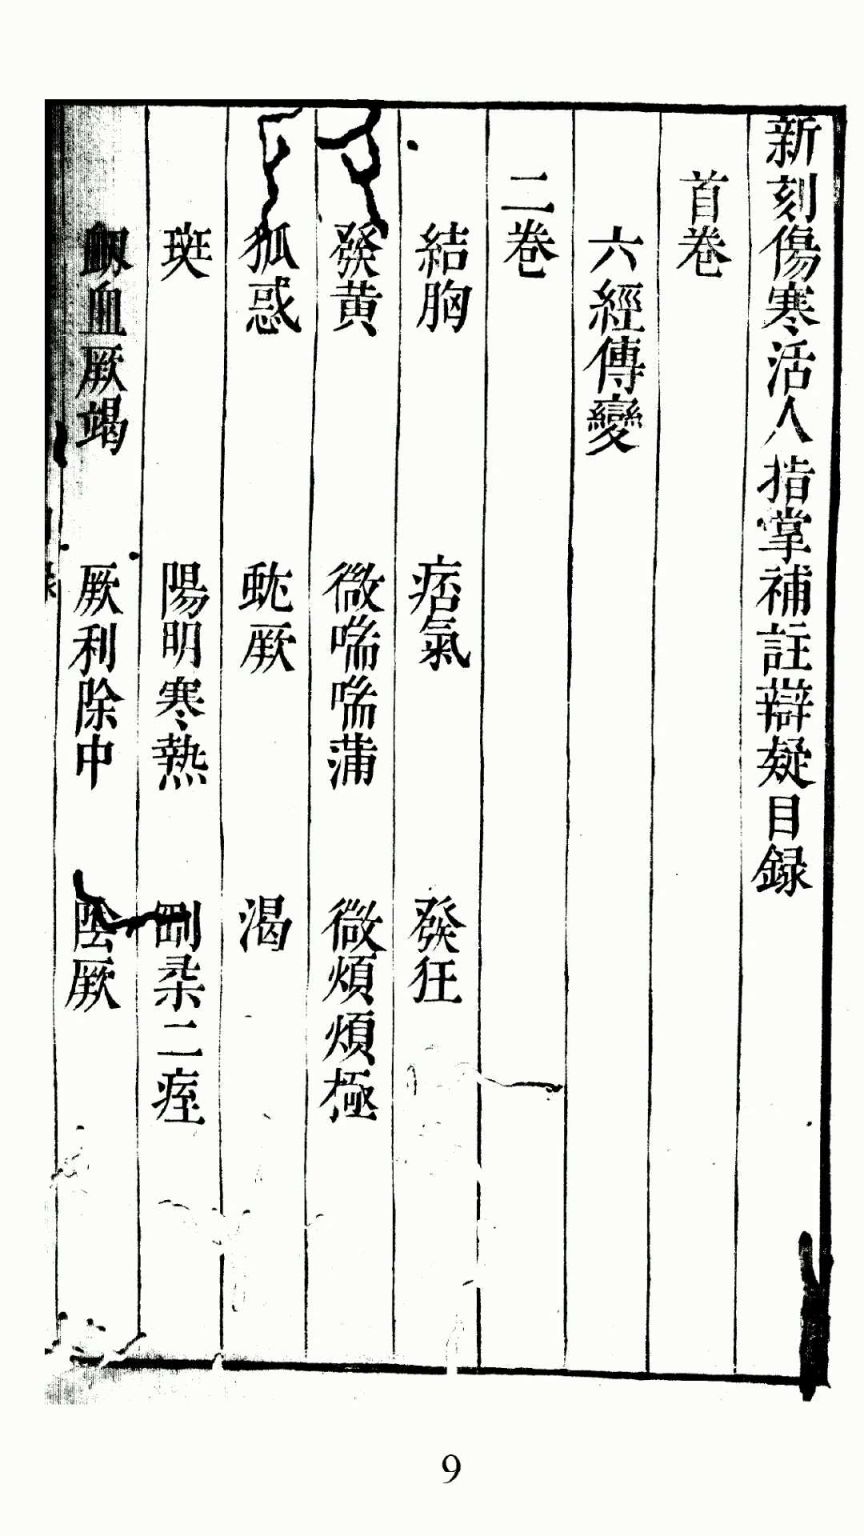 新刻傷寒活人指掌補註辯疑目録
首卷
六經傳變
二卷
結胸 痞氣 發狂
發黄 微喘喘蒲 微煩煩極
狐惑 蚘厥 渴
斑 陽明寒熱 剛柔二痓
衂血厥竭 厥利除中 陰厥
9